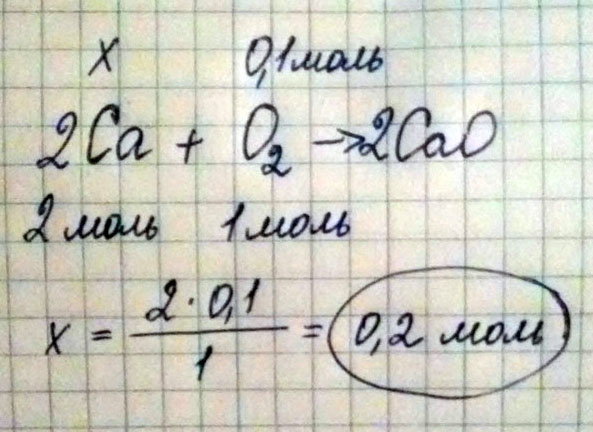 x 0,1 моль
2Ca + O₂ → 2CaO
2 моль 1 моль
x = 2 · 0,1 / 1 = 0,2 моль